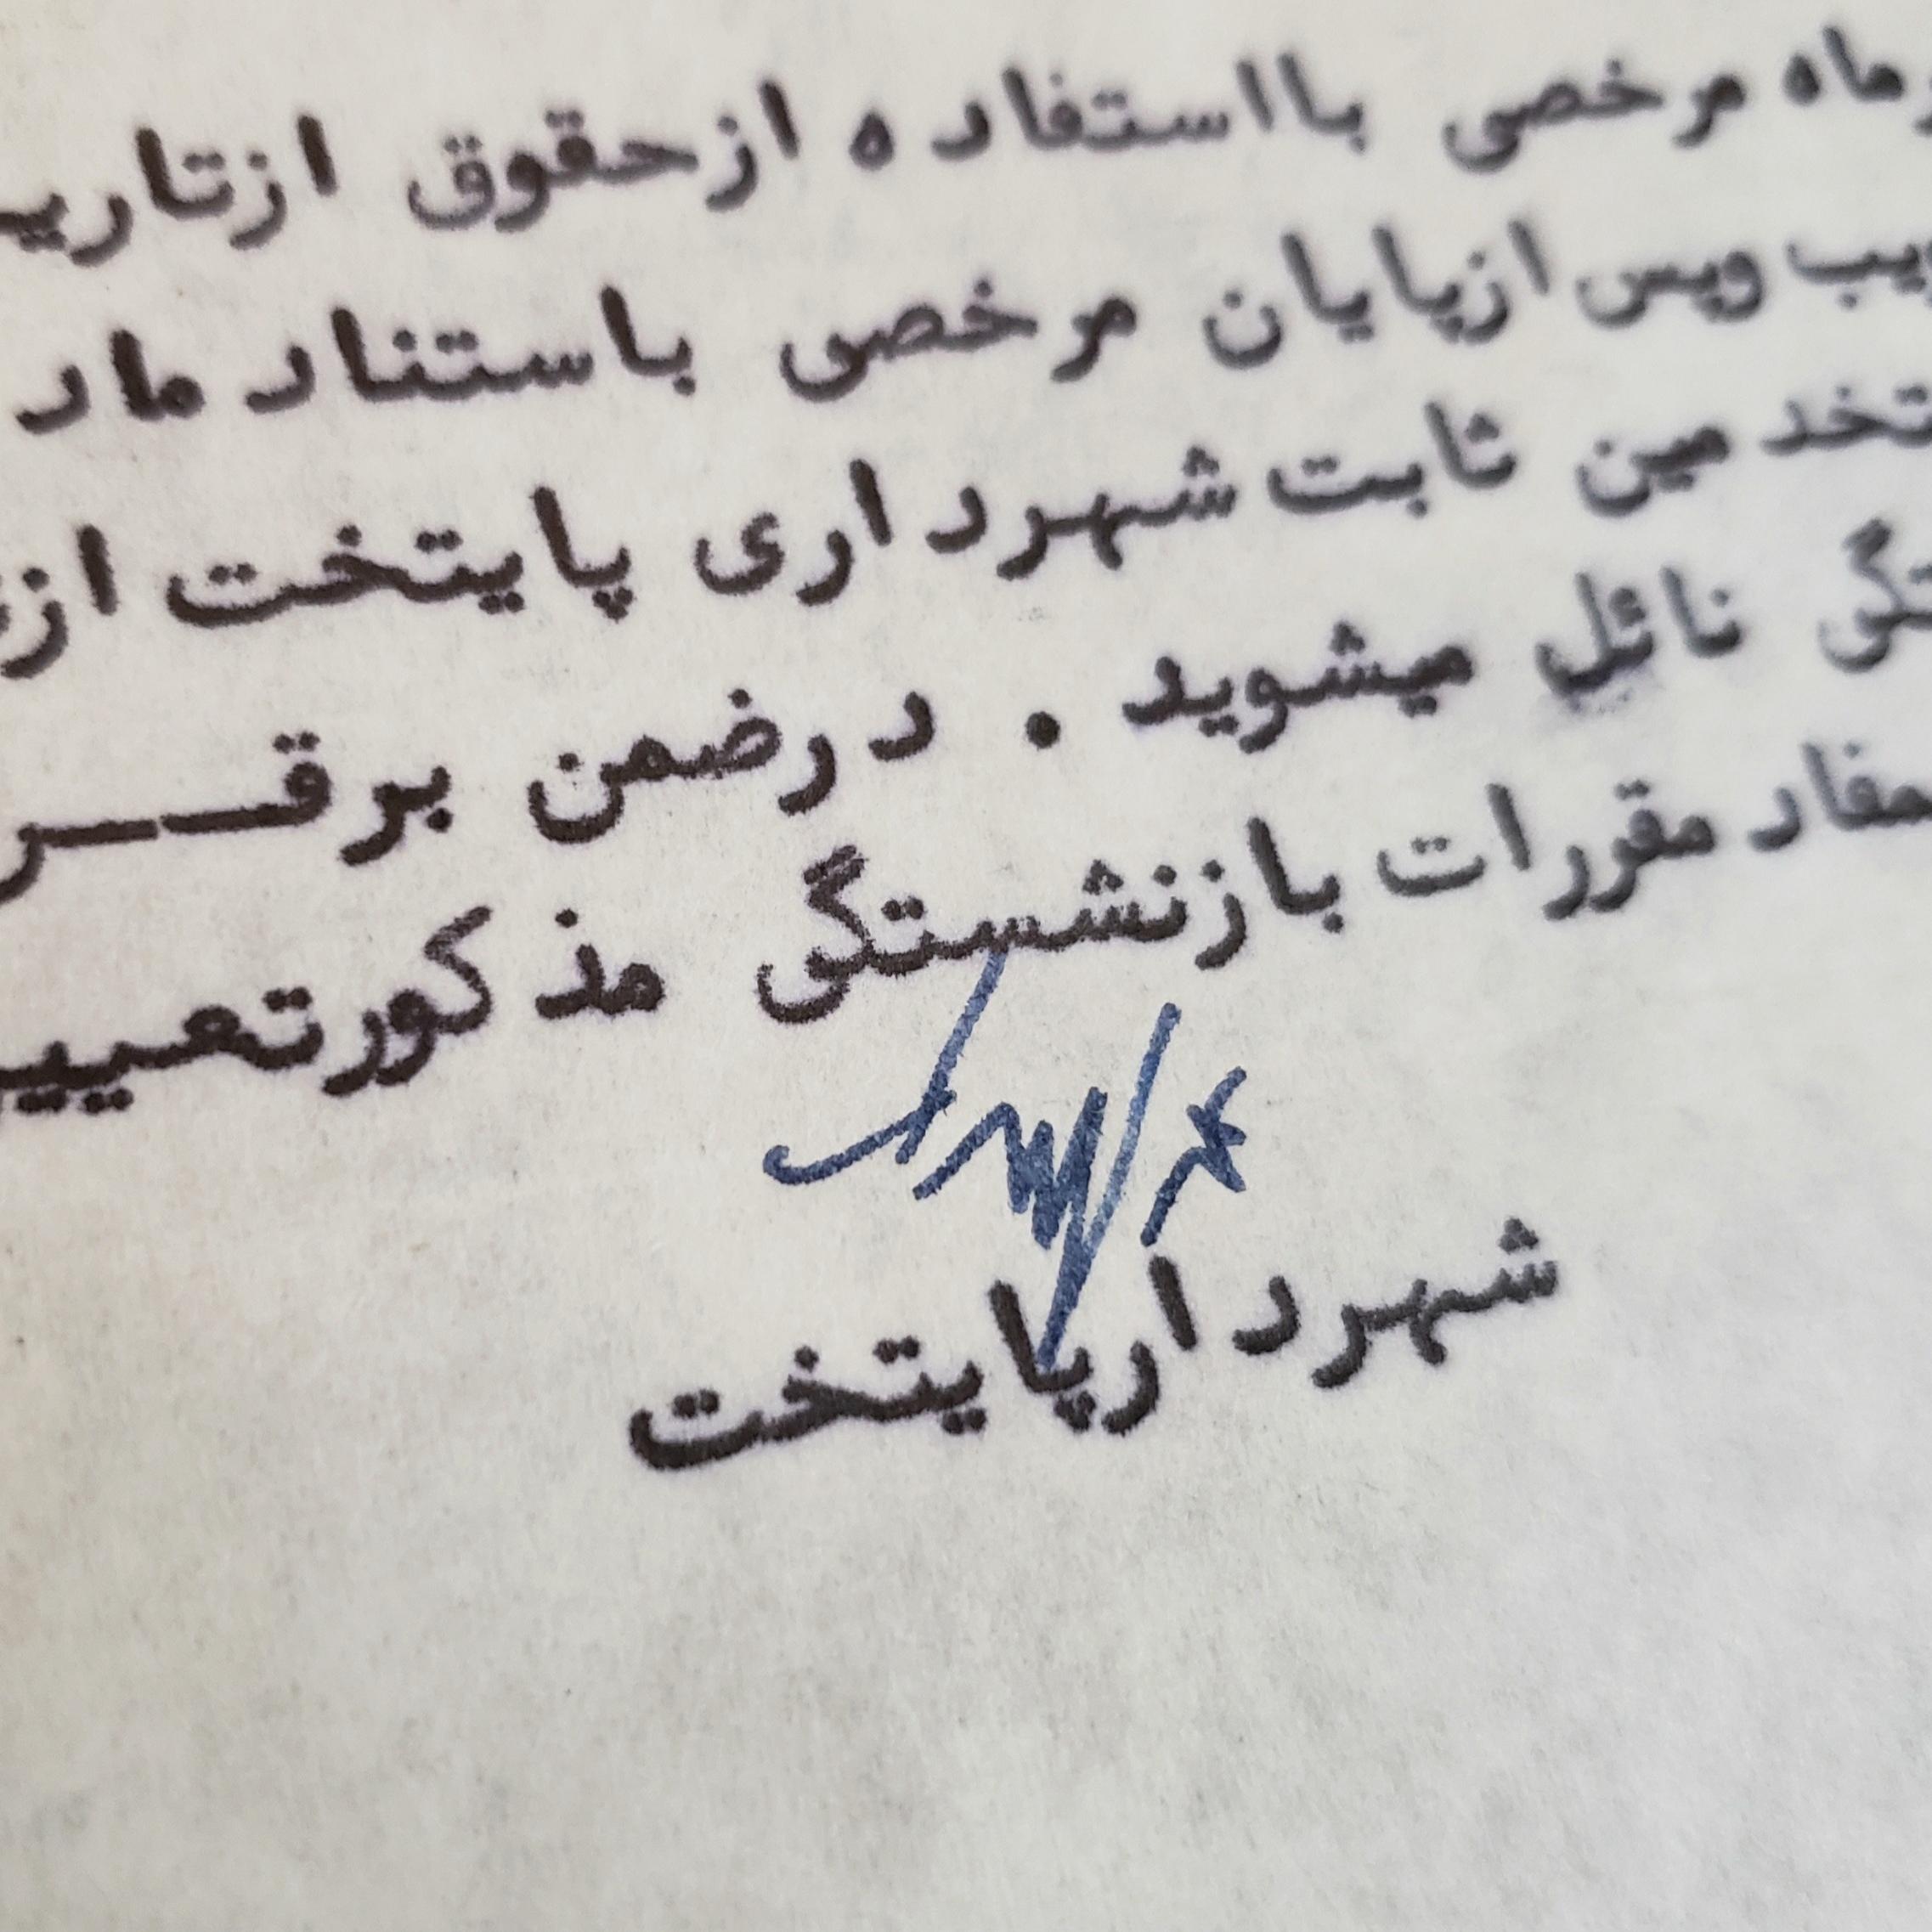 ماه مرخصی بااستفاده ازحقوق ازتاری
یب وپس ازپایان مرخصی باستناد ماد
تخدمین ثابت شهرداری پایتخت از
تگی نائل میشوید . درضمن برقـــر
مفاد مقررات بازنشستگی مذکورتعیی
شهردارپایتخت